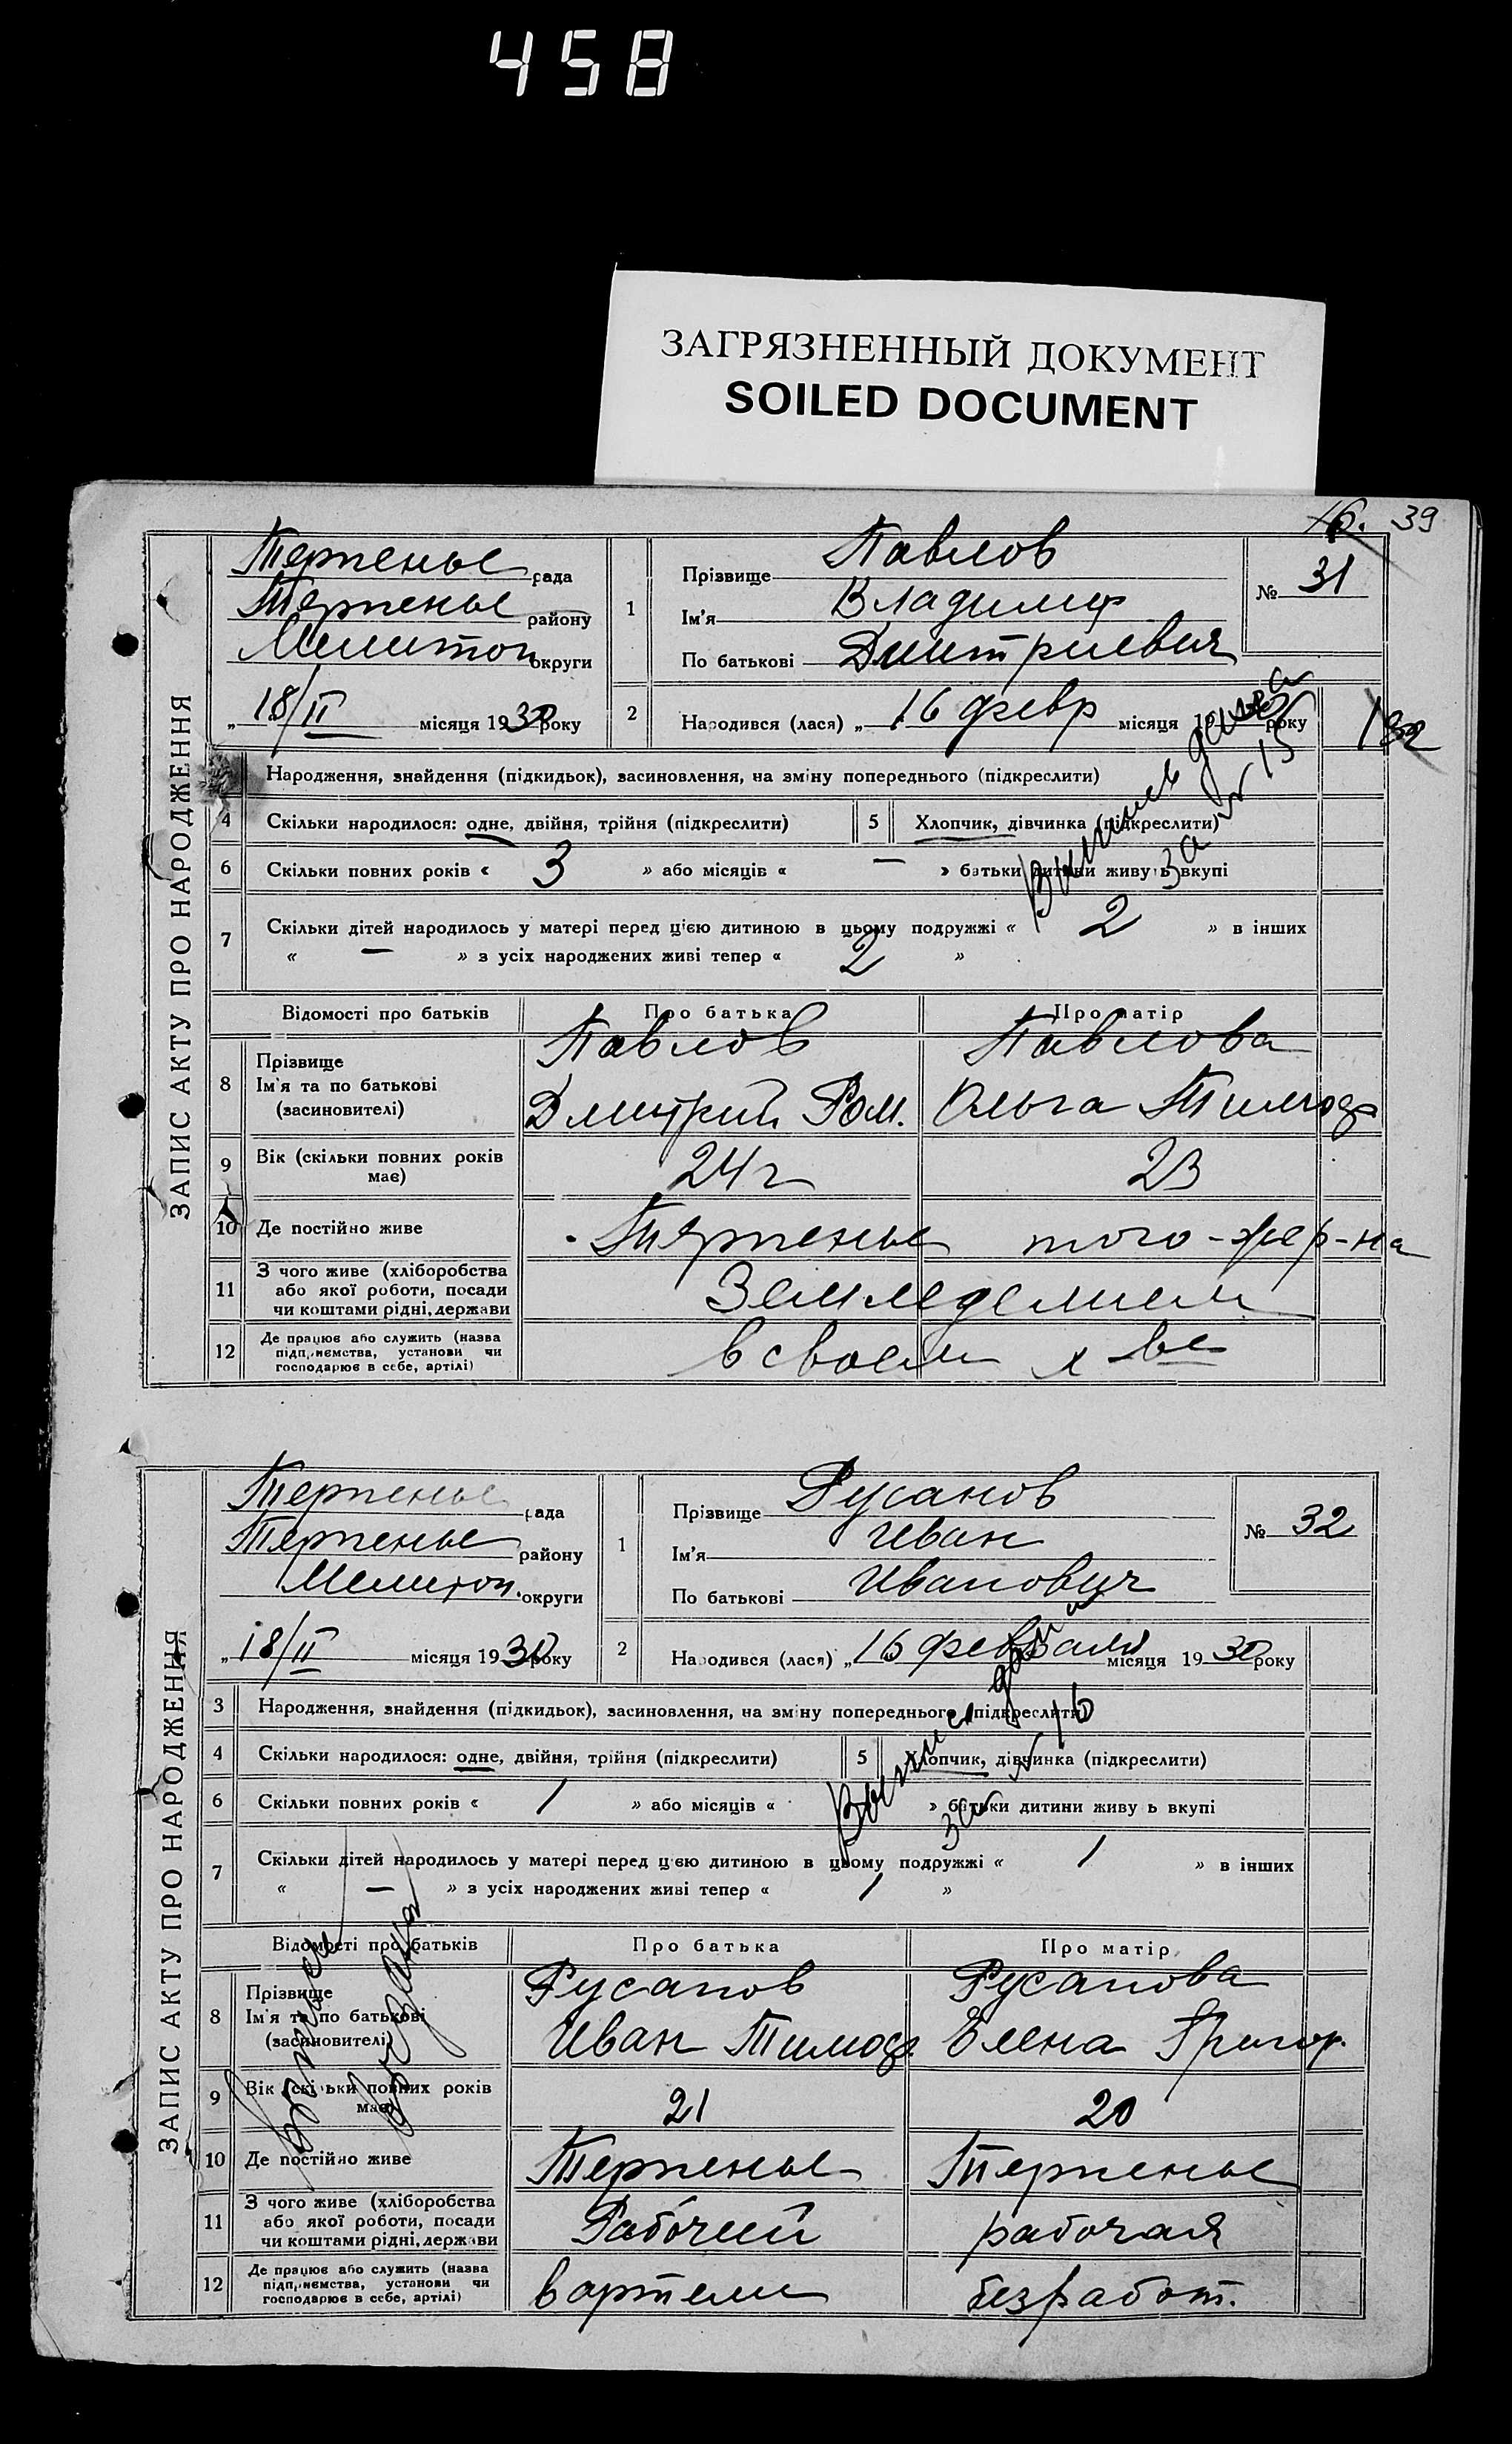 458
ЗАГРЯЗНЕННЫЙ ДОКУМЕНТ
SOILED DOCUMENT
39
ЗАПИС АКТУ ПРО НАРОДЖЕННЯ
Терпенье рада
Терпенье району
Мелитоп округи
„ 18/II місяця 1930 року
1 Прізвище Павлов
Ім'я Владимир
По батькові Дмитриевич
№ 31
2 Народився (лася) „ 16 февр місяця 19 року
Народження, знайдення (підкидьок), засиновлення, на зміну попереднього (підкреслити)
4 Скільки народилося: одне, двійня, трійня (підкреслити) 5 Хлопчик, дівчинка (підкреслити)
6 Скільки повних років « 3 » або місяців « — » батьки дитини живуть вкупі
7 Скільки дітей народилось у матері перед цією дитиною в цьому подружжі « 2 » в інших
« — » з усіх народжених живі тепер « 2 »
за № 15
Відомості про батьків Про батька Про матір
8 Прізвище Павлов Павлова
Ім'я та по батькові Дмитрий Ром. Ольга Тимоф
(засиновителі)
9 Вік (скільки повних років має) 24 г 23
10 Де постійно живе Терпенье того-же р-на
11 З чого живе (хліборобства або якої роботи, посади чи коштами рідні, держави Земледелием
12 Де працює або служить (назва підприємства, установи чи господарює в себе, артілі) в своем х-ве
ЗАПИС АКТУ ПРО НАРОДЖЕННЯ
Терпенье рада
Терпенье району
Мелитоп. округи
„ 18/II місяця 1930 року
1 Прізвище Русанов
Ім'я Иван
По батькові Иванович
№ 32
2 Народився (лася) „ 16 февраля місяця 1930 року
3 Народження, знайдення (підкидьок), засиновлення, на зміну попереднього (підкреслити)
4 Скільки народилося: одне, двійня, трійня (підкреслити) 5 Хлопчик, дівчинка (підкреслити)
6 Скільки повних років « 1 » або місяців « » батьки дитини живуть вкупі
7 Скільки дітей народилось у матері перед цією дитиною в цьому подружжі « 1 » в інших
« — » з усіх народжених живі тепер « 1 »
за № 16
Відомості про батьків Про батька Про матір
8 Прізвище Русанов Русанова
Ім'я та по батькові Иван Тимоф. Елена Григор.
(засиновителі)
9 Вік (скільки повних років має) 21 20
10 Де постійно живе Терпенье Терпенье
11 З чого живе (хліборобства або якої роботи, посади чи коштами рідні, держави Рабочий рабочая
12 Де працює або служить (назва підприємства, установи чи господарює в себе, артілі) в артели безработ.